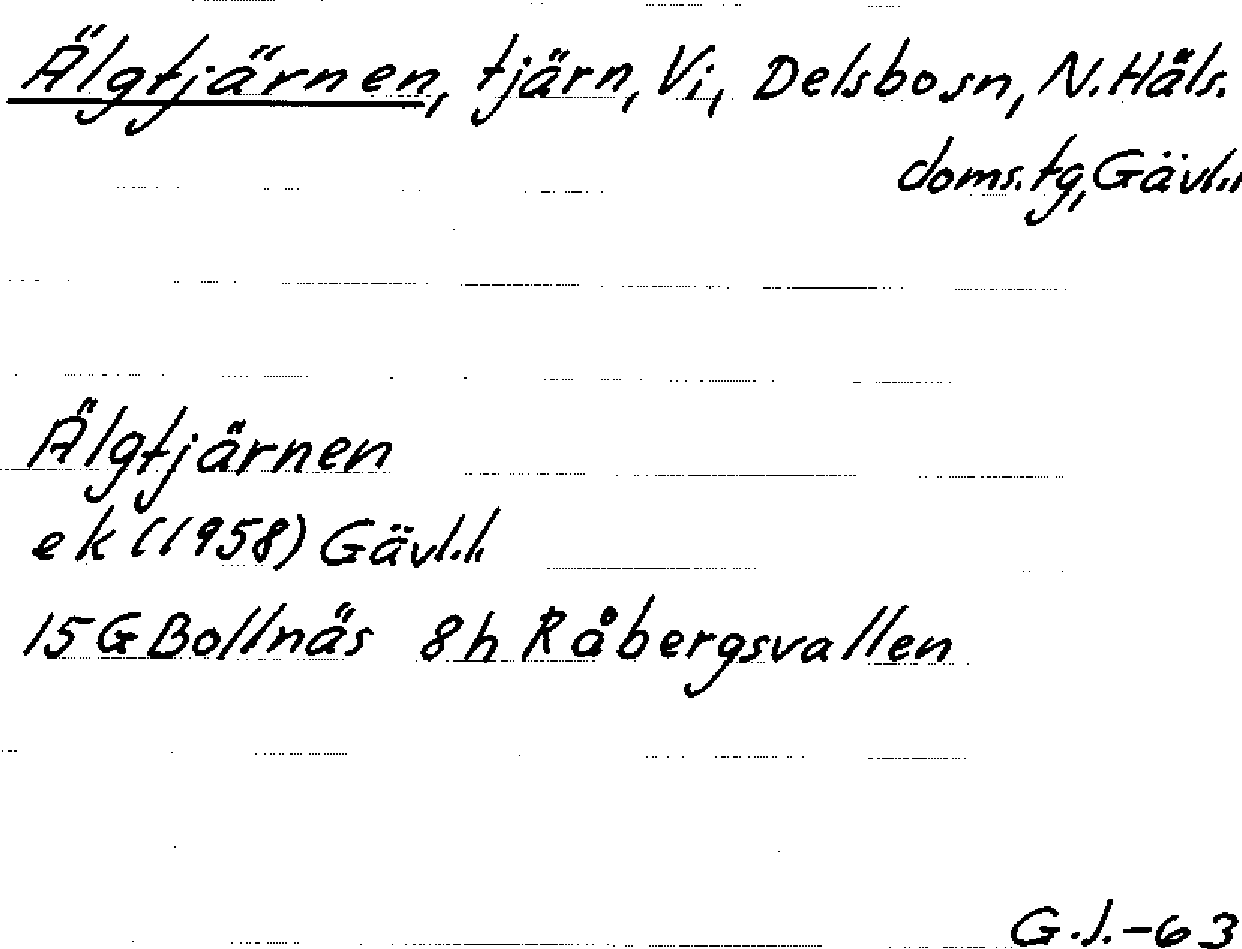 Älgtjärnen, tjärn, Vi, Delsbo sn, N. Häls.
doms. tg, Gävl.l.
Älgtjärnen
ek (1958) Gävl.l.
15G Bollnäs 8h Råbergsvallen
G.J.-63